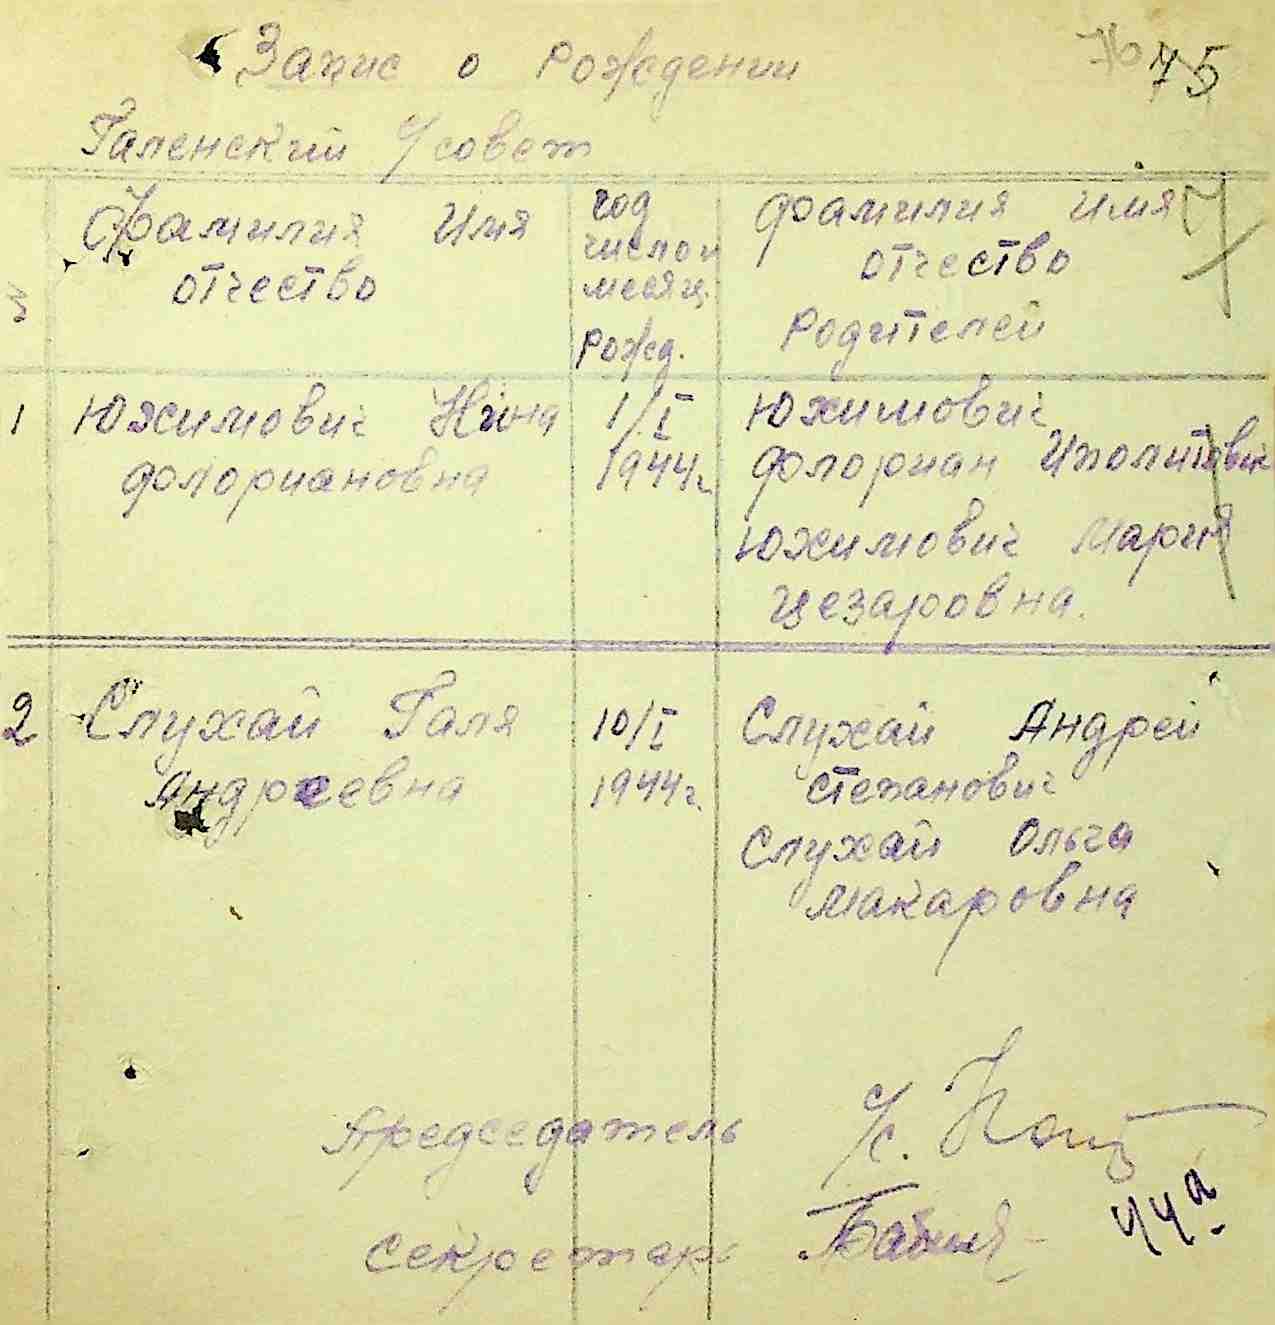 Запис о Рождении
75
Галенский с/совет
Фамилия Имя отчество
год число и месяц рожд.
фамилия имя отчество Родителей
1
Юхимович Нина
Флориановна
1/I
1944г.
Юхимович
Флориан Иполитович
Юхимович Мария
Цезаровна.
2
Слухай Галя
Андреевна
10/I
1944г.
Слухай Андрей
Степанович
Слухай Ольга
Макаровна
Председатель
секретарь
44а